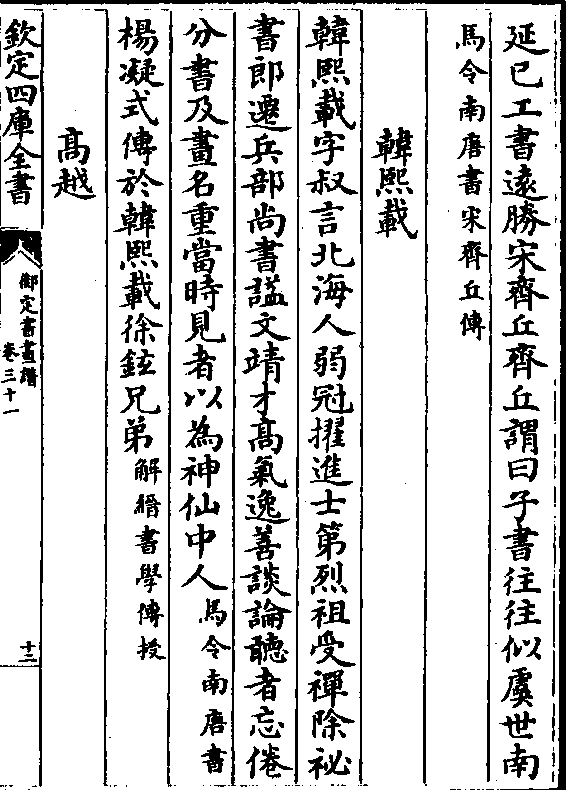 延已工書遠勝宋齊丘齊丘謂曰子書往往似虞世南
馬令南唐書宋齊丘傳
韓熙載
韓熙載字叔言北海人弱冠擢進士第烈祖受禪除祕
書郎遷兵部尚書諡文靖才髙氣逸善談論聽者忘倦
分書及畫名重當時見者以為神仙中人馬令南唐書
楊凝式傳於韓熙載徐鉉兄弟解縉書學傳授
髙越
欽定四庫全書
御定書畫譜
卷三十一
十二